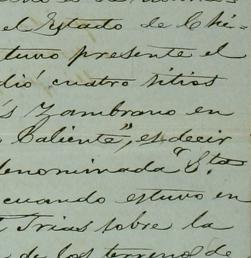 el Estado de Chi-
tuvo presente el
dió cuatro sitios
s Zambrano en
Caliente", es decir
denominada "Sta.
cuando estuvo en
Trias sobre la
de los terrenos de